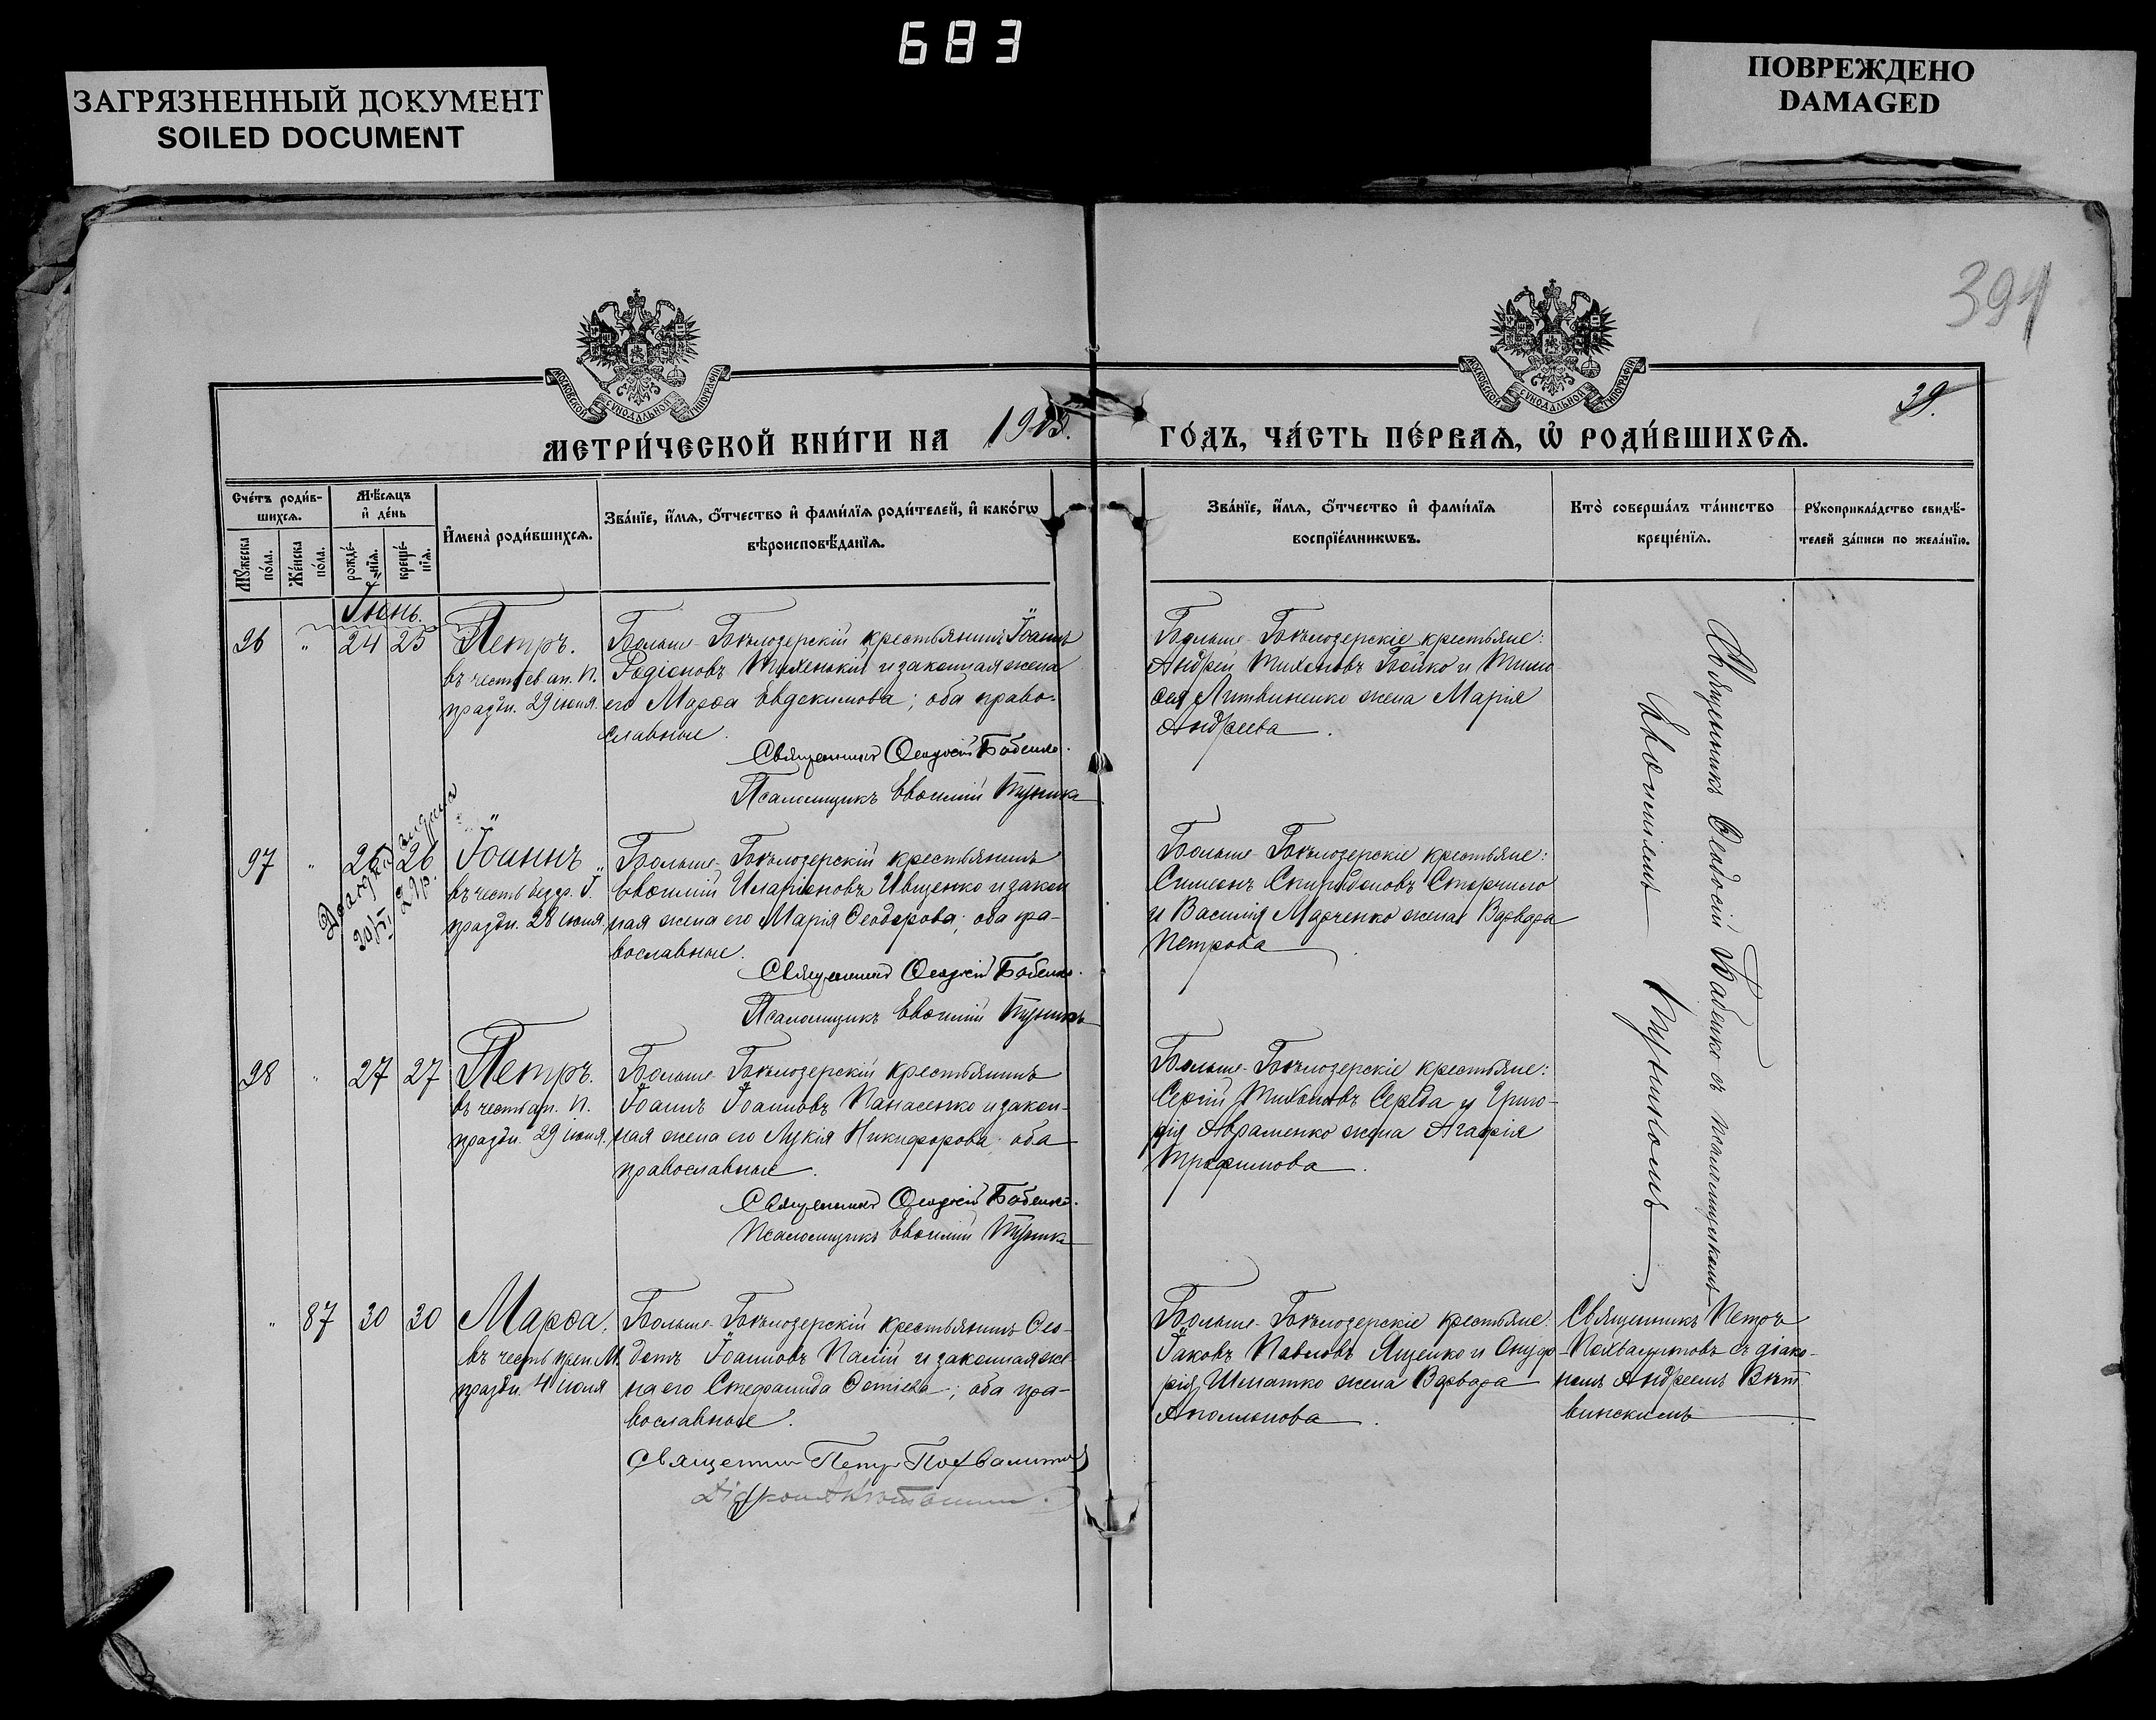 683
ЗАГРЯЗНЕННЫЙ ДОКУМЕНТ
SOILED DOCUMENT
ПОВРЕЖДЕНО
DAMAGED
394
39.
МОСКОВСКОЙ СѴНОДАЛЬНОЙ ТИПОГРАФІИ
МОСКОВСКОЙ СѴНОДАЛЬНОЙ ТИПОГРАФІИ
МЕТРИ́ЧЕСКОЙ КНИ́ГИ НА 1913. ГО́ДЪ, ЧА́СТЬ ПЕ́РВАѦ, Ѽ РОДИ́ВШИХСѦ.
Сче́тъ роди́вшихсѧ.
Мѹ́жеска по́ла.
Же́нска по́ла.
Мѣ́сѧцъ и҆ де́нь
рожде́нїѧ.
креще́нїѧ.
И҆мена̀ роди́вшихсѧ.
Зва́нїе, и҆́мѧ, ѻ҆́тчество и҆ фами́лїѧ роди́телей, и҆ како́гѡ
вѣроисповѣ́данїѧ.
Зва́нїе, и҆́мѧ, ѻ҆́тчество и҆ фами́лїѧ
воспрїе́мникѡвъ.
Кто̀ соверша́лъ та́инство
креще́нїѧ.
Рѹкоприкла́дство свидѣ́-
телей за́писи по жела́нїю.
Іюнь.
96 " 24 25
Петръ.
въ честь св. ап. П.
праздн. 29 іюня.
Больше-Бѣлозерскій крестьянинъ Іоаннъ
Родіоновъ Тихенькій и законная жена
его Марѳа Евдокимова; оба право-
славные.
Священникъ Ѳеодосій Бабенко.
Псаломщикъ Евѳимій
Больше-Бѣлозерскіе крестьяне:
Андрей Тихоновъ Бойко и Тимо
ѳея Литвиненко жена Марія
Андреева.
97 " 26 26
Іоаннъ
въ честь безср. І.
праздн. 28 іюня.
Больше-Бѣлозерскій крестьянинъ
Евѳимій Иларіоновъ Ивщенко и закон
ная жена его Марія Ѳеодорова; оба пра-
вославные.
Священникъ Ѳеодосій Бабенко.
Псаломщикъ Евѳимій
Больше-Бѣлозерскіе крестьяне:
Симеонъ Спиридоновъ Сторчило
и Василія Марченко жена Варвара
Петрова
98 " 27 27
Петръ.
въ честь ап. П.
праздн. 29 іюня.
Больше-Бѣлозерскій крестьянинъ
Іоаннъ Іоанновъ Панасенко и закон-
ная жена его Лукія Никифорова; оба
православные.
Священникъ Ѳеодосій Бабенко.
Псаломщикъ Евѳимій
Больше-Бѣлозерскіе крестьяне:
Сергій Тихоновъ Середа и Григо-
рія Авраменко жена Агафія
Трофимова.
Священникъ Ѳеодосій Бабенко съ псаломщикомъ
Евѳиміемъ
" 87 30 30
Марѳа.
въ честь преп. М.
праздн. 4 іюля
Больше-Бѣлозерскій крестьянинъ Ѳео-
дотъ Іоанновъ Палій и законная же
на его Стефанида Фотіева; оба пра-
вославные.
Священникъ Петръ Похвалитовъ
Больше-Бѣлозерскіе крестьяне:
Іаковъ Павловъ Ященко и Онуф
рія Шматко жена Варвара
Аполлонова.
Священникъ Петръ
Похвалитовъ съ діако-
номъ Андреемъ Вит
винскимъ